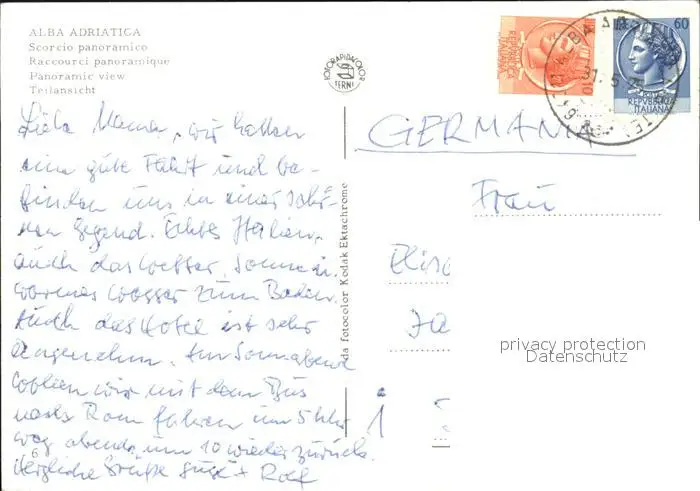 ALBA ADRIATICA
Scorcio panoramico
Raccourci panoramique
Panoramic view
Teilansicht
Liebe Mama, wir hatten
eine gute Fahrt und be-
finden uns in einer schö-
nen Gegend. Echtes Italien,
auch das Wetter, Sonne u.
warmes Wasser zum Baden.
Auch das Hotel ist sehr
angenehm. Am Sonnabend
wollen wir mit dem Bus
nach Rom fahren um 5 Uhr
weg abends um 10 wieder zurück.
Herzliche Grüße + Rolf
FOTORAPIDACOLOR
TERNI
da fotocolor Kodak Ektachrome
REPUBBLICA
ITALIANA
10
60
POSTE
REPVBBLICA
ITALIANA
GERMANIA
Frau
privacy protection
Datenschutz